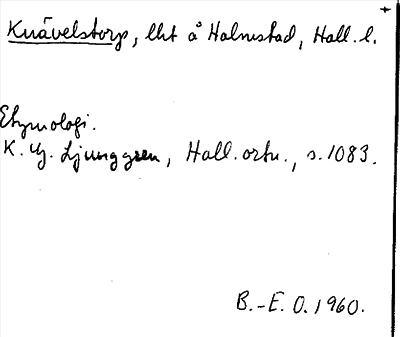 Knävelstorp, lht å Halmstad, Hall. l.
Etymologi.
K. G. Ljunggren, Hall. ortn., s. 1083.
B.-E. O. 1960.